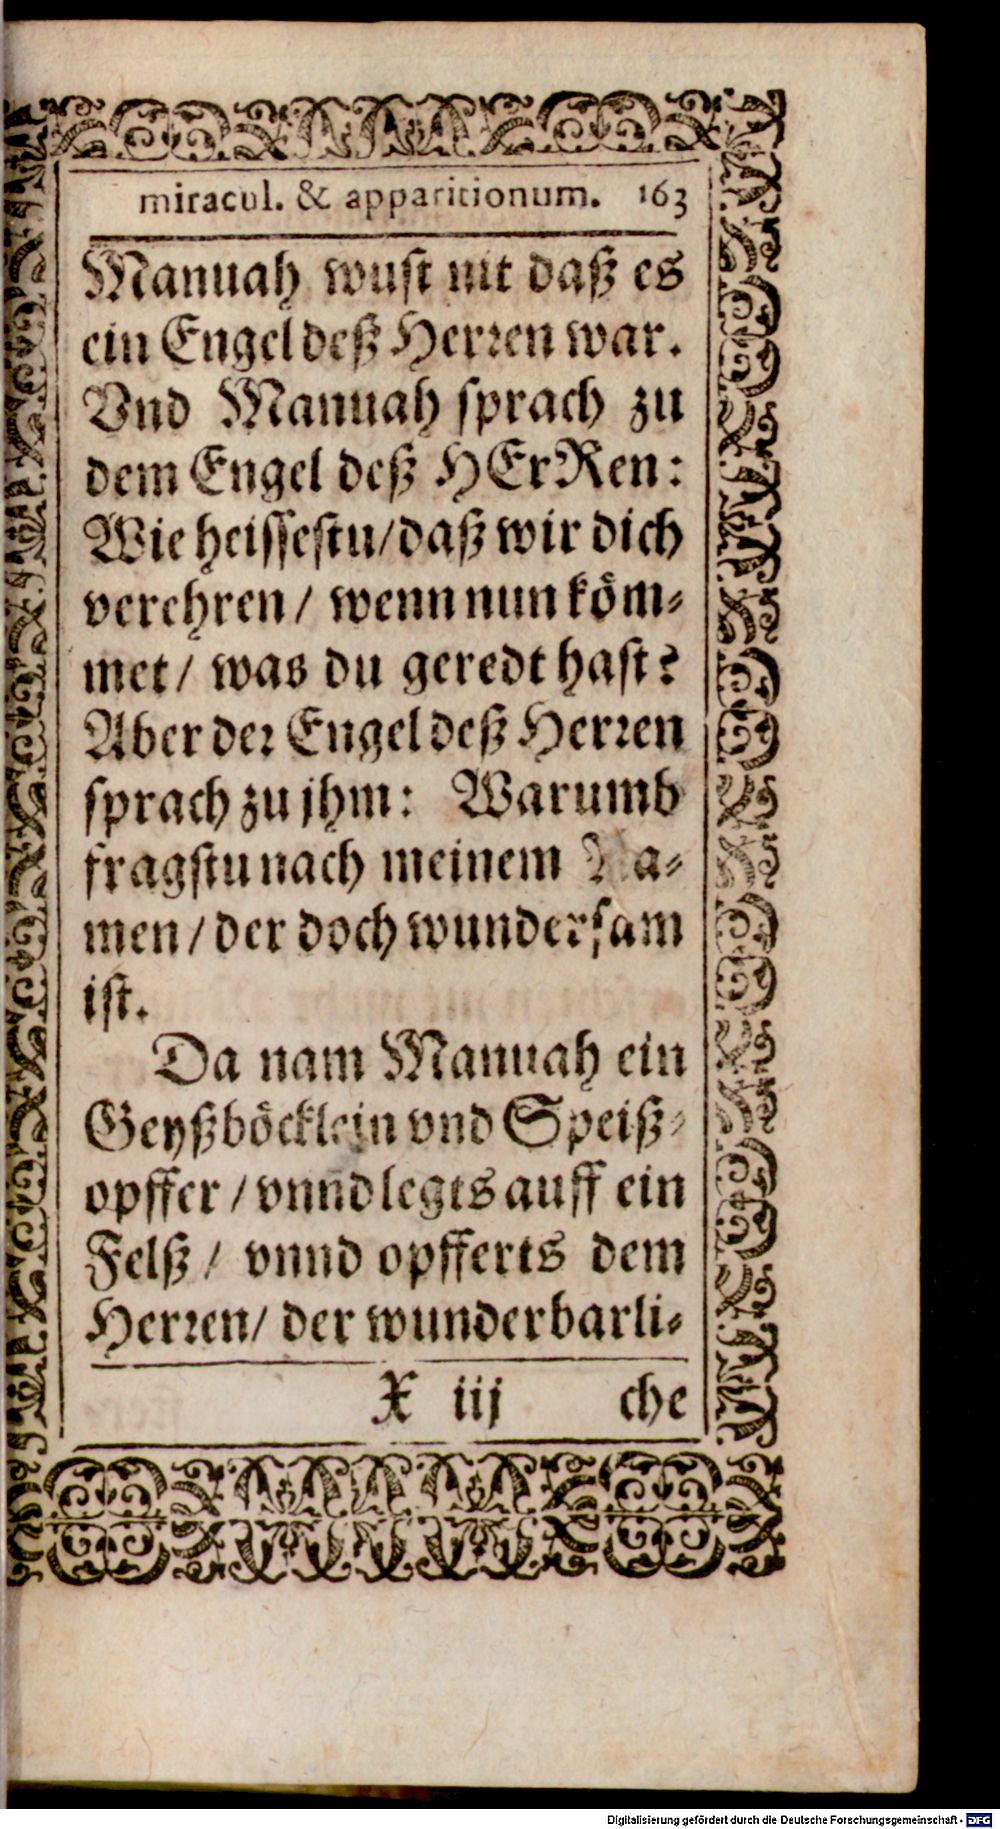 miracul. & apparitionum. 163
Manuah wust nit daß es
ein Engel deß Herren war.
Vnd Manuah sprach zu
dem Engel deß HErRen:
Wie heissestu/daß wir dich
verehren/ wenn nun köm-
met/ was du geredt hast?
Aber der Engel deß Herren
sprach zu jhm: Warumb
fragstu nach meinem Na-
men/der doch wundersam
ist.
Da nam Manuah ein
Geyßböcklein vnd Speiß-
opffer/vnnd legts auff ein
Felß/ vnnd opfferts dem
Herren/ der wunderbarli-
X iij che
Digitalisierung gefördert durch die Deutsche Forschungsgemeinschaft - DFG